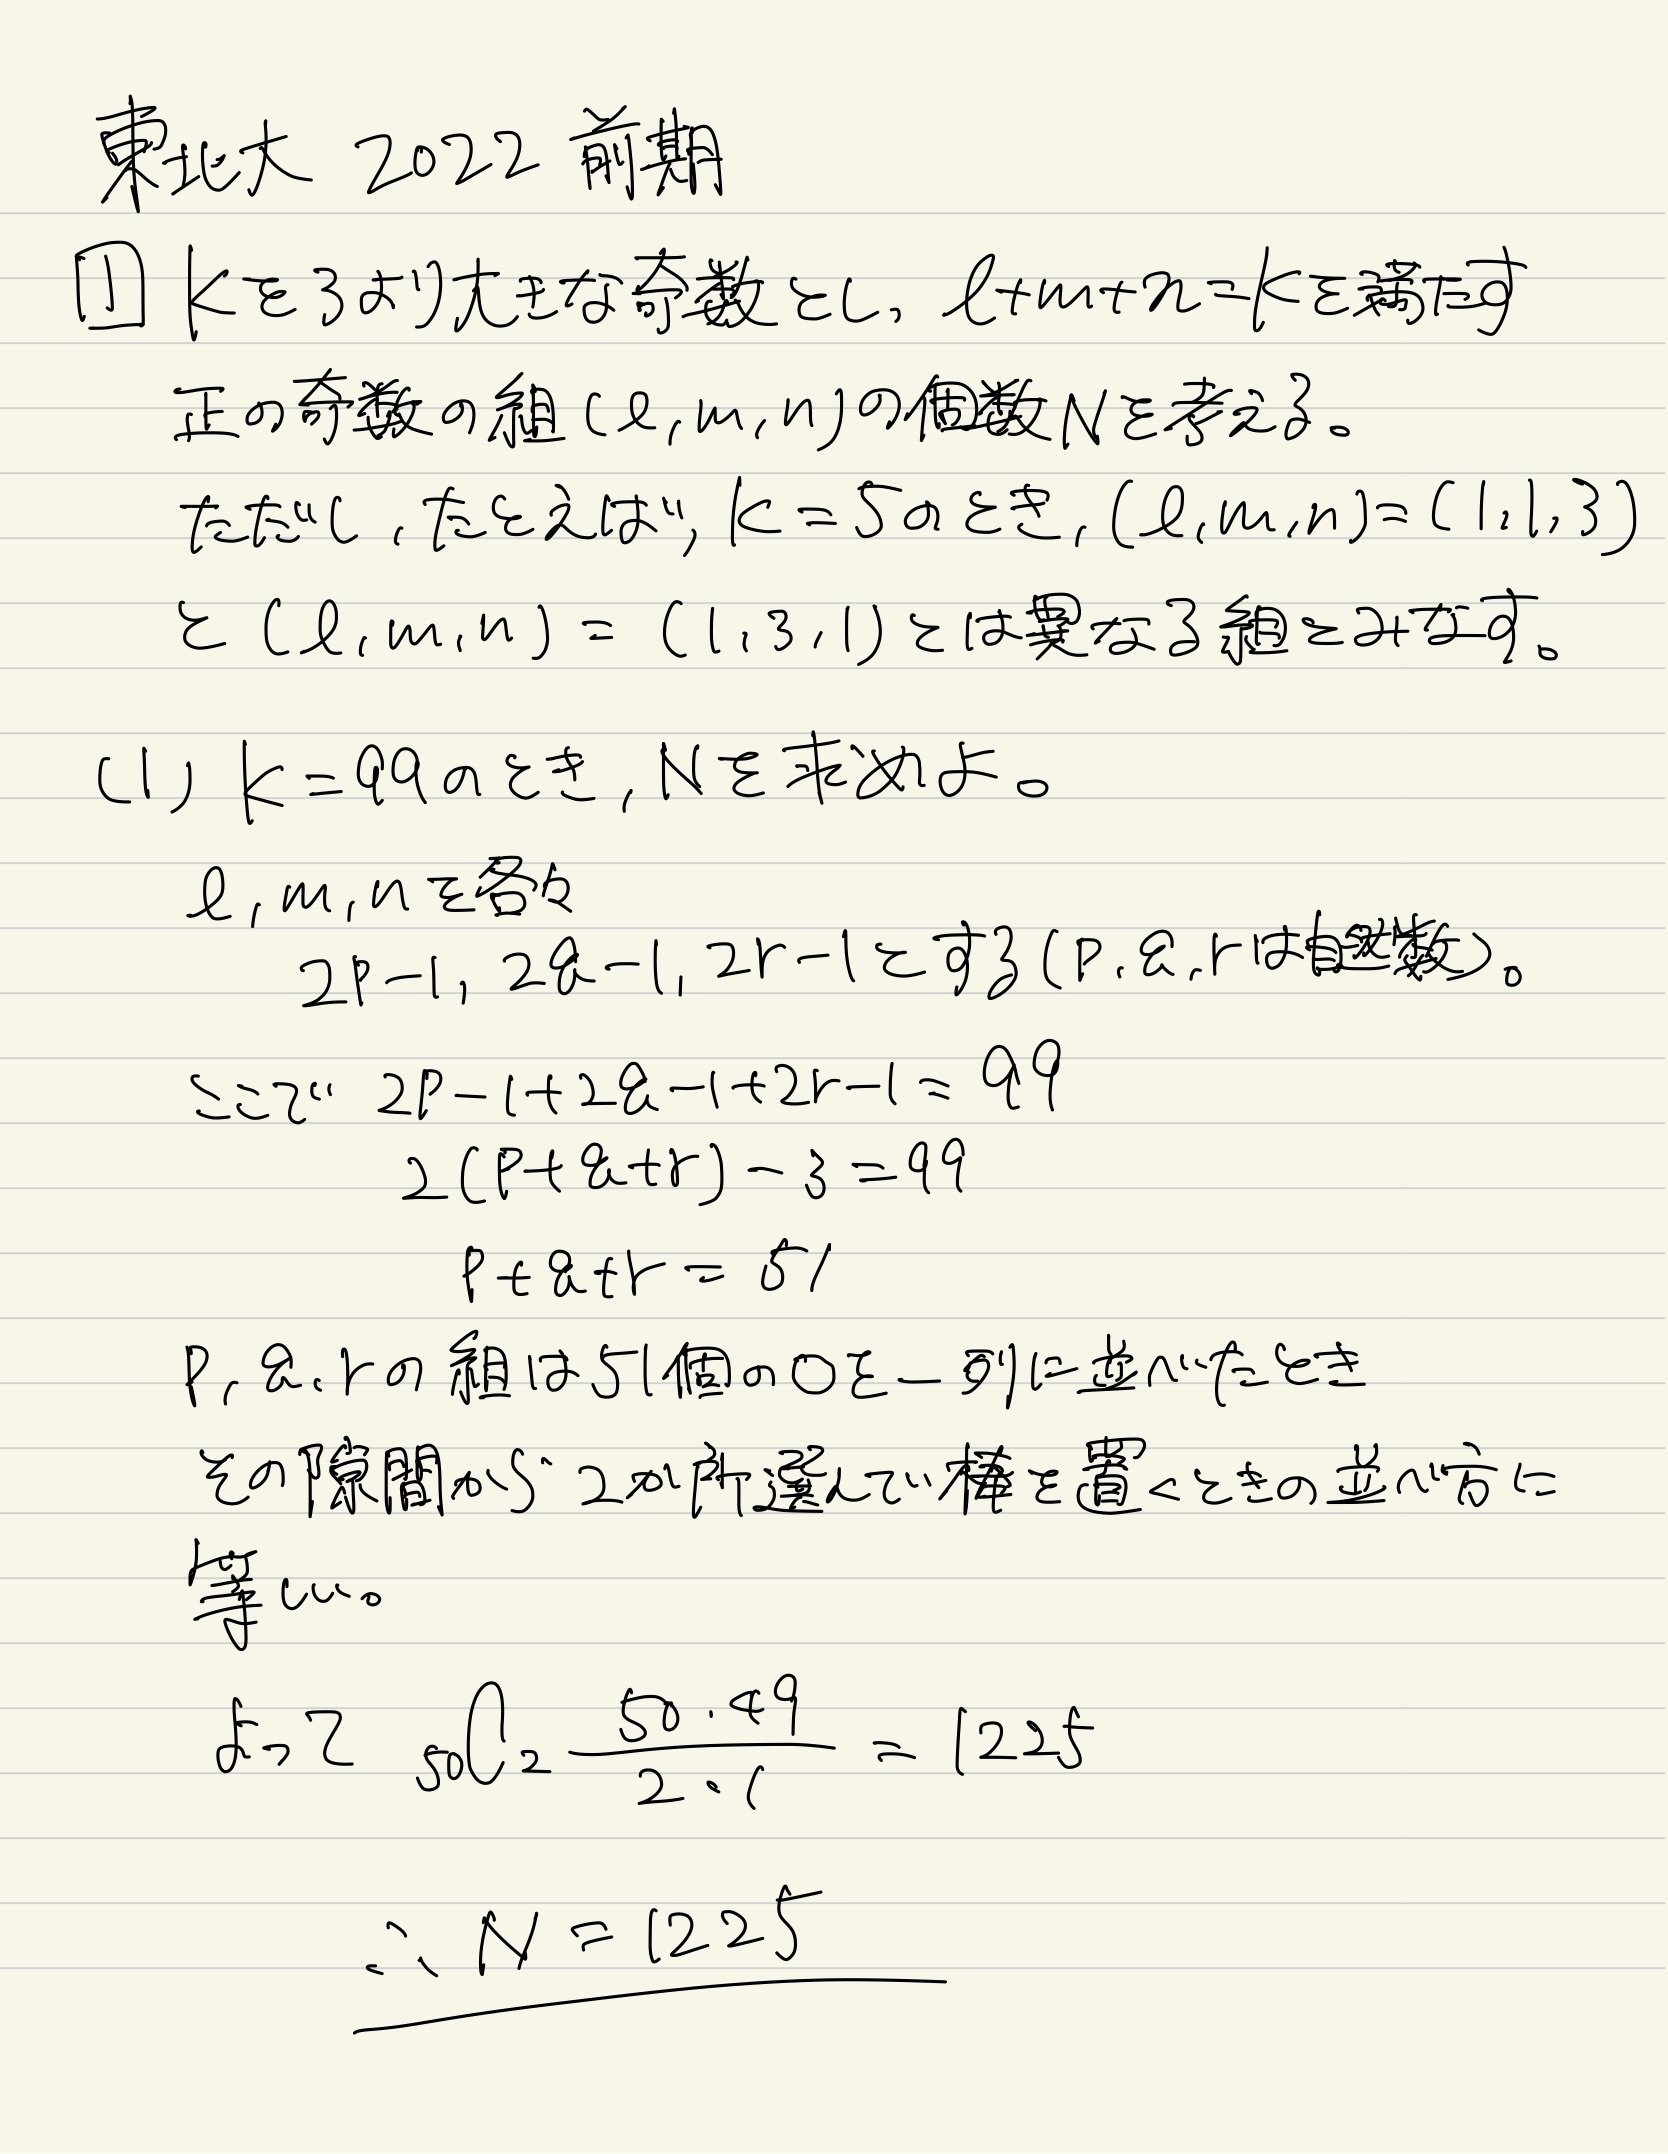 東北大 2022 前期
1 kを3より大きな奇数とし、l+m+n=kを満たす
正の奇数の組(l,m,n)の個数Nを考える。
ただし,たとえば,k=5のとき,(l,m,n)=(1,1,3)
と(l,m,n)=(1,3,1)とは異なる組とみなす。
(1) k=99のとき,Nを求めよ。
l,m,nを各々
2p-1, 2q-1, 2r-1とする(p,q,rは自然数)。
ここで 2p-1+2q-1+2r-1=99
2(p+q+r)-3=99
p+q+r=51
p,q,rの組は51個の○を一列に並べたとき
その隙間から2か所選んで棒を置くときの並べ方に
等しい。
よって 50C2 50・49/2・1 = 1225
∴ N=1225